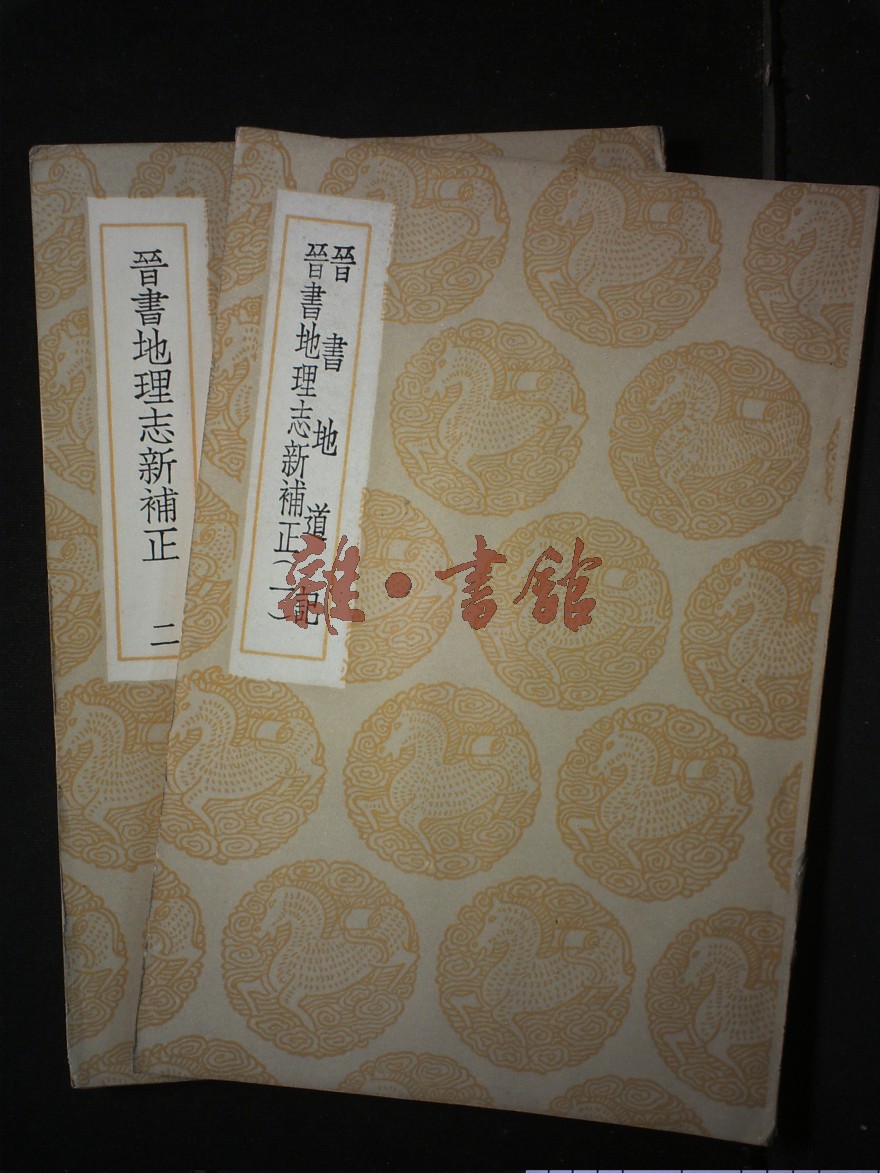 晉書地道記
晉書地理志新補正(一)
晉書地理志新補正 二
雜·書館